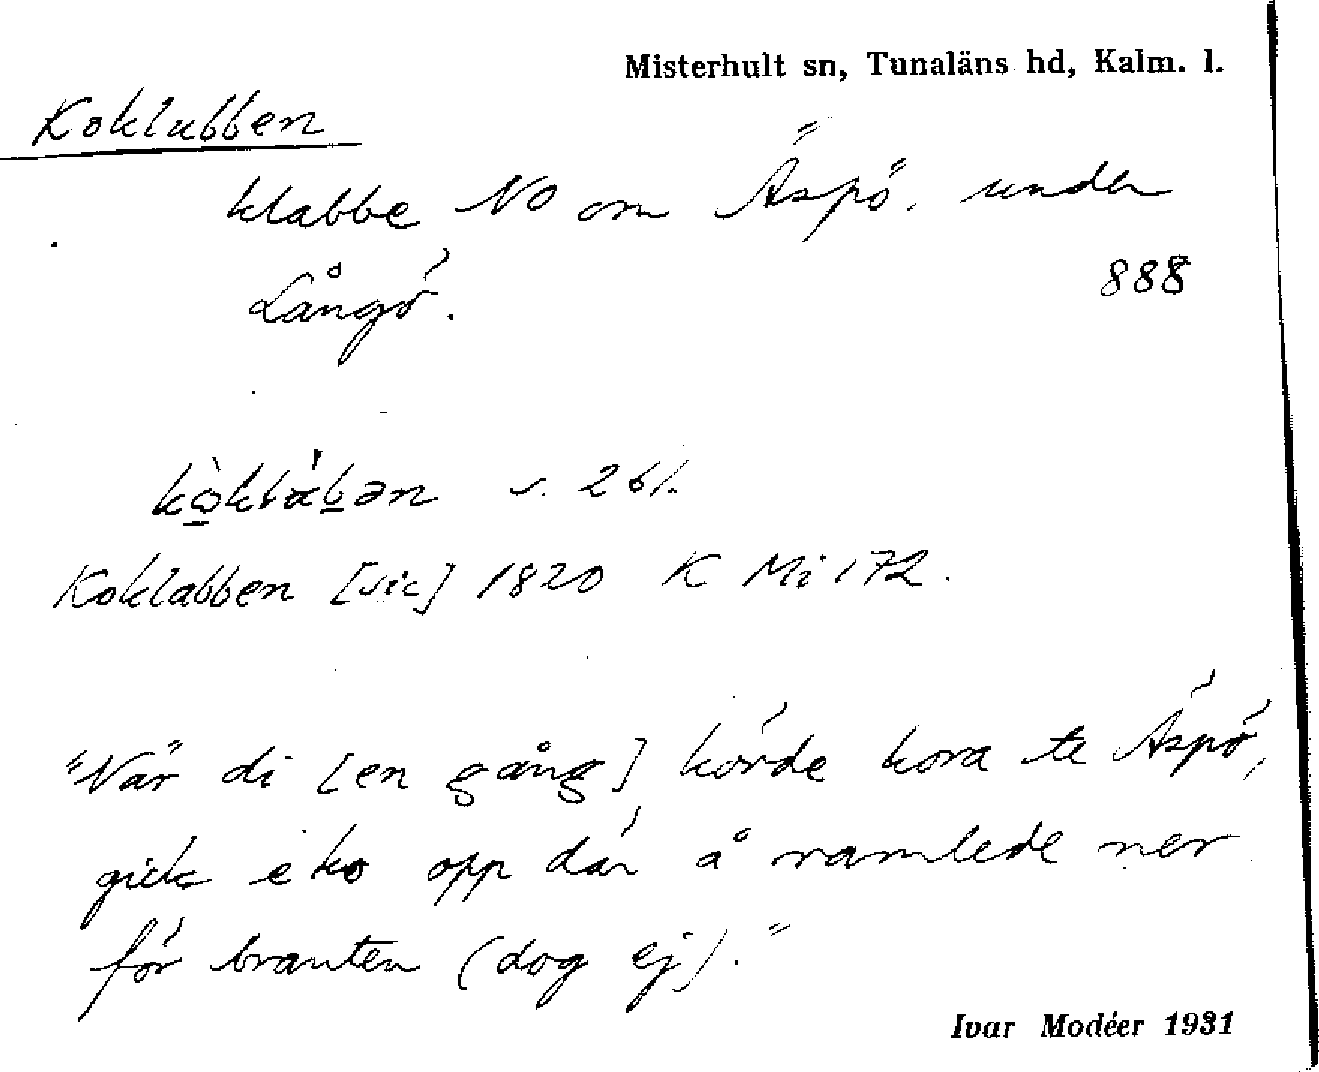 Misterhult sn, Tunaläns hd, Kalm. l.
Koklubben
klabbe NO om Äspö, under
Långö.
888
s. 261.
Koklabben [sic] 1820 K Mi 172.
"När di [en gång] körde kora te Äspö,
gick e ko opp där å ramlede ner
för branten (dog ej)."
Ivar Modéer 1931